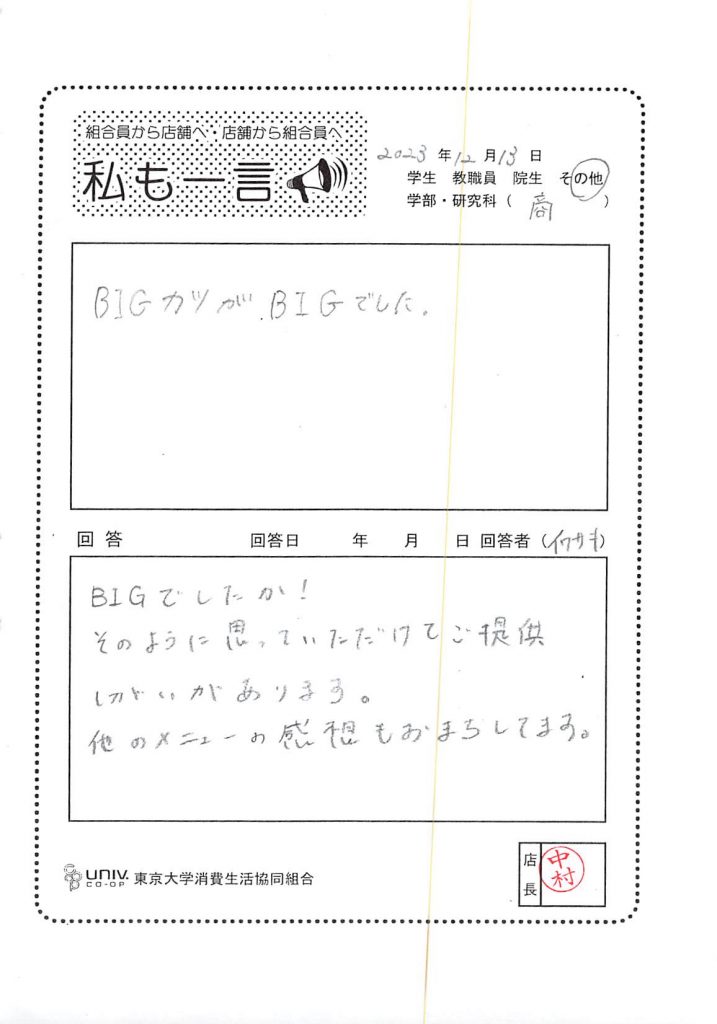 組合員から店舗へ・店舗から組合員へ
私も一言
2023 年 12 月 13 日
学生 教職員 院生 その他
学部・研究科（ 商 ）
BIGカツが、BIGでした。
回答 回答日 年 月 日 回答者（イワサキ）
BIGでしたか！
そのように思っていただけてご提供
しがいがあります。
他のメニューの感想もおまちしてます。
UNIV. CO-OP 東京大学消費生活協同組合
店長 中村